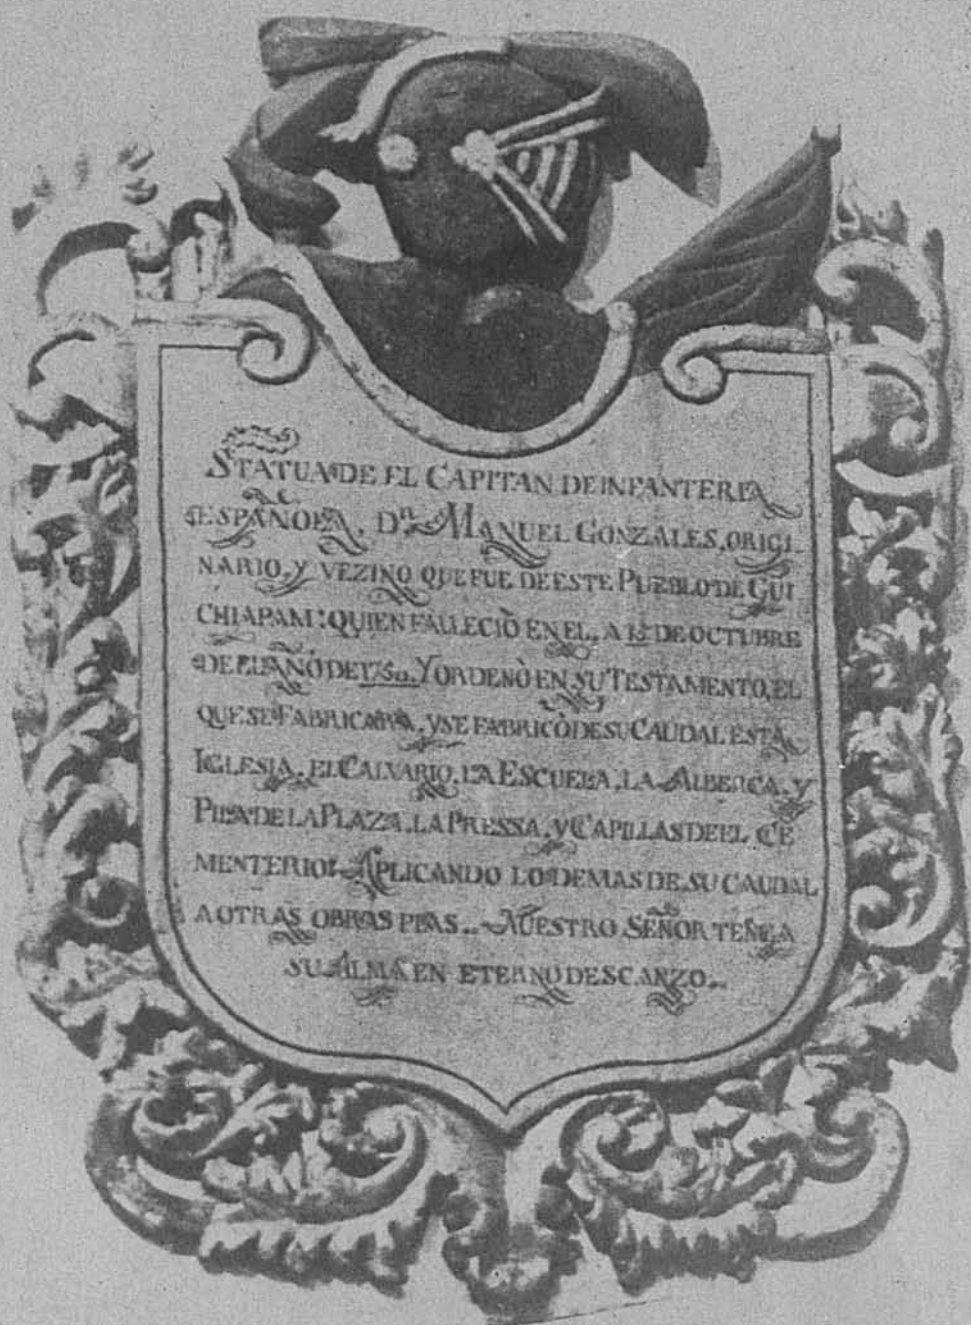 STATUA DE EL CAPITAN DE INFANTERIA
ESPAÑOLA, Dn. MANUEL GONZALES, ORIGI-
NARIO, Y VEZINO QUE FUE DE ESTE PUEBLO DE GÜI
CHIAPAM: QUIEN FALLECIÒ EN EL, A DE OCTUBRE
DE EL AÑO DE 1750. Y ORDENÒ EN SU TESTAMENTO, EL
QUE SE FABRICARA, Y SE FABRICÒ DE SU CAUDAL ESTA
IGLESIA, EL CALVARIO, LA ESCUELA, LA ALBERCA, Y
PILA DE LA PLAZA, LA PRESSA, Y CAPILLAS DE EL CE
MENTERIO: APLICANDO LO DEMAS DE SU CAUDAL
A OTRAS OBRAS PIAS.. NUESTRO SEÑOR TENGA
SU ALMA EN ETERNO DESCANZO..